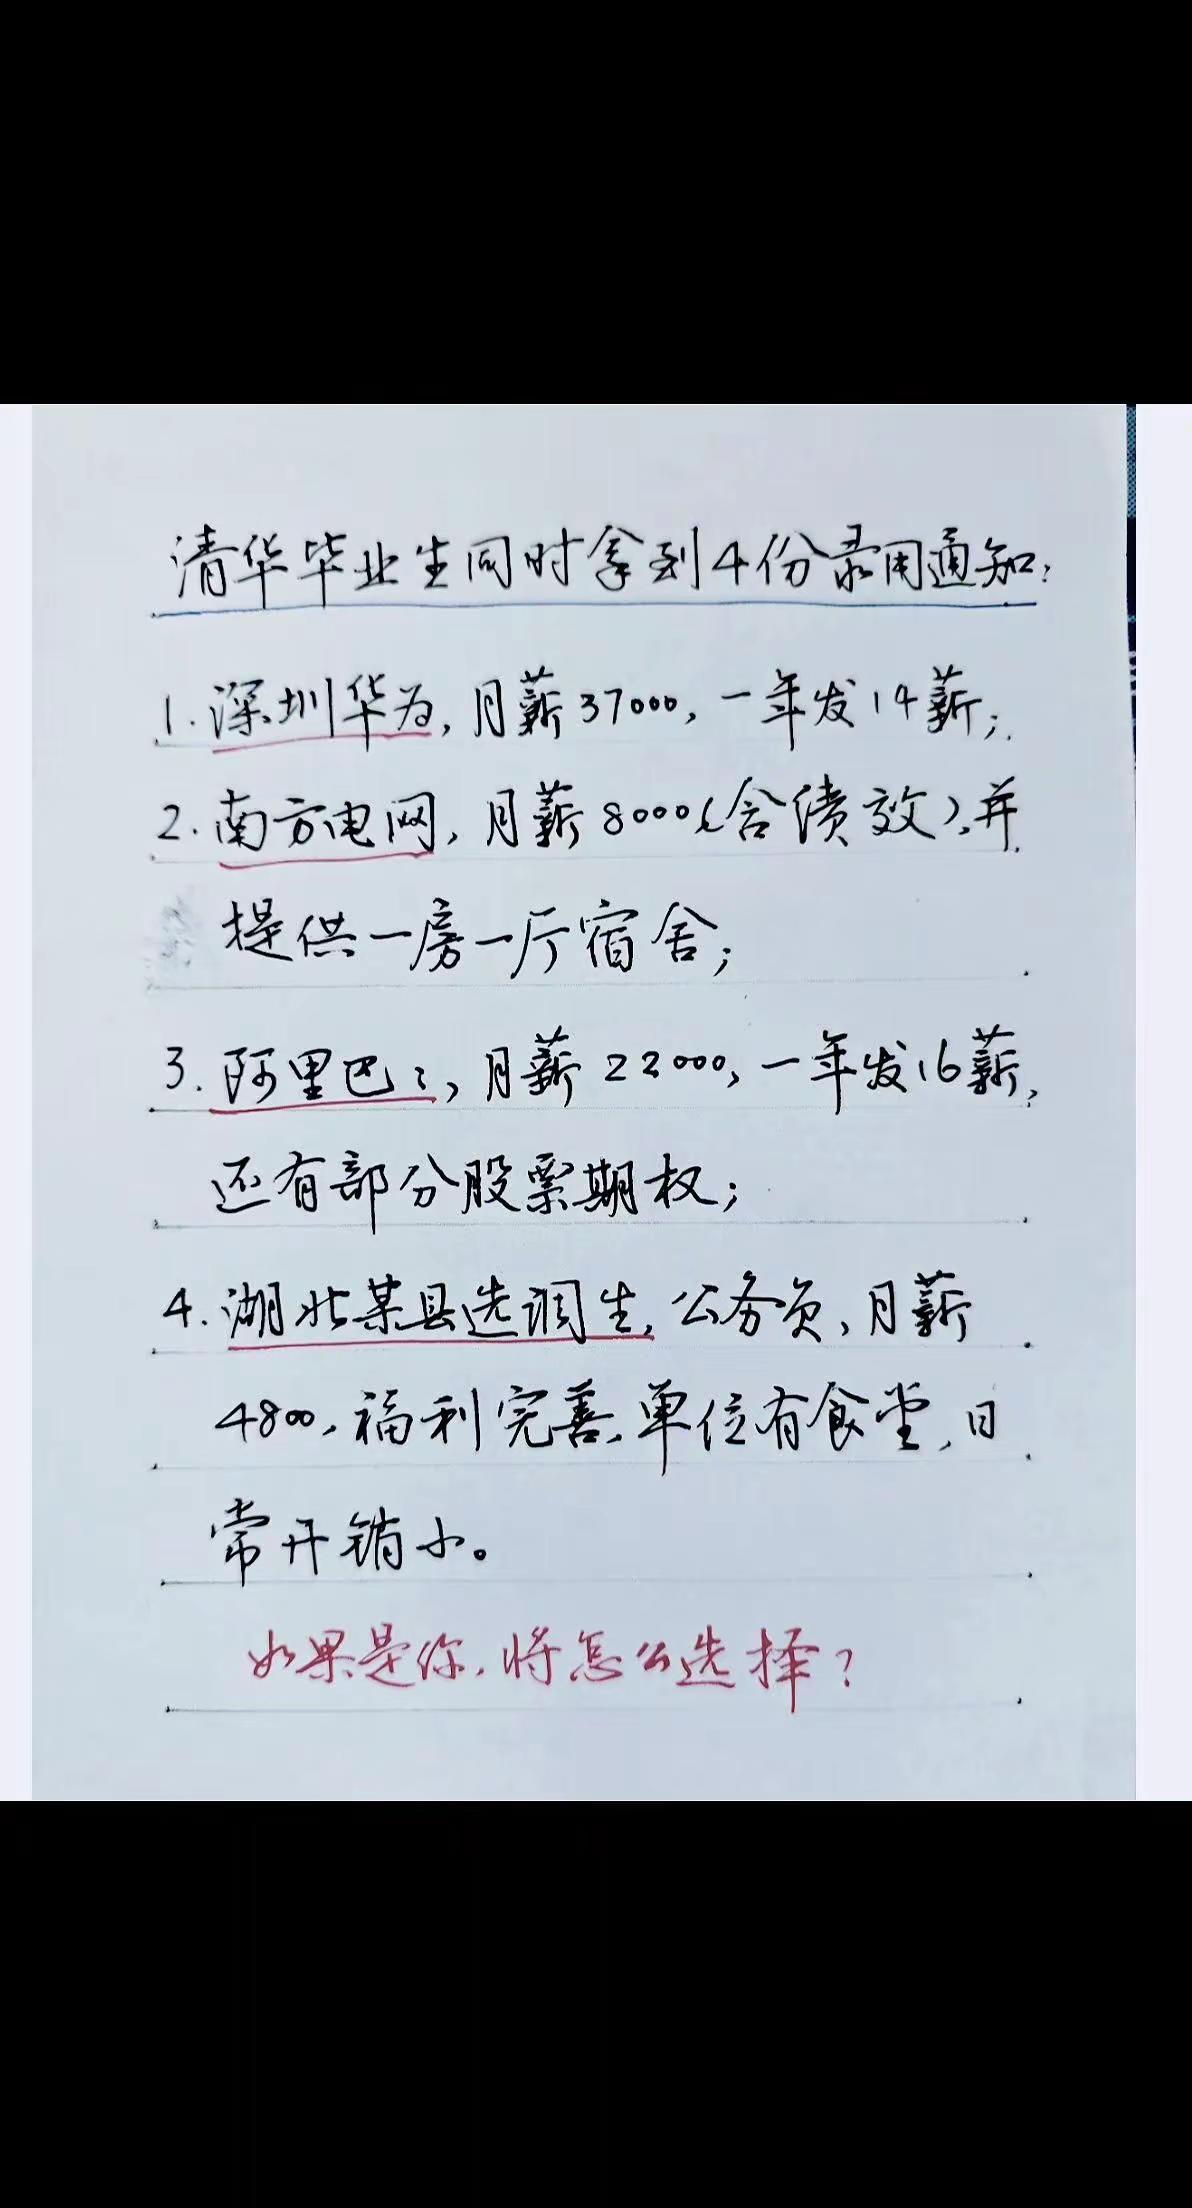 清华毕业生同时拿到4份录用通知:
1.深圳华为,月薪37000,一年发14薪;
2.南方电网,月薪8000(含绩效),并
提供一房一厅宿舍;
3.阿里巴〻,月薪22000,一年发16薪,
还有部分股票期权;
4.湖北某县选调生,公务员,月薪
4800,福利完善,单位有食堂,日
常开销小。
如果是你,将怎么选择?